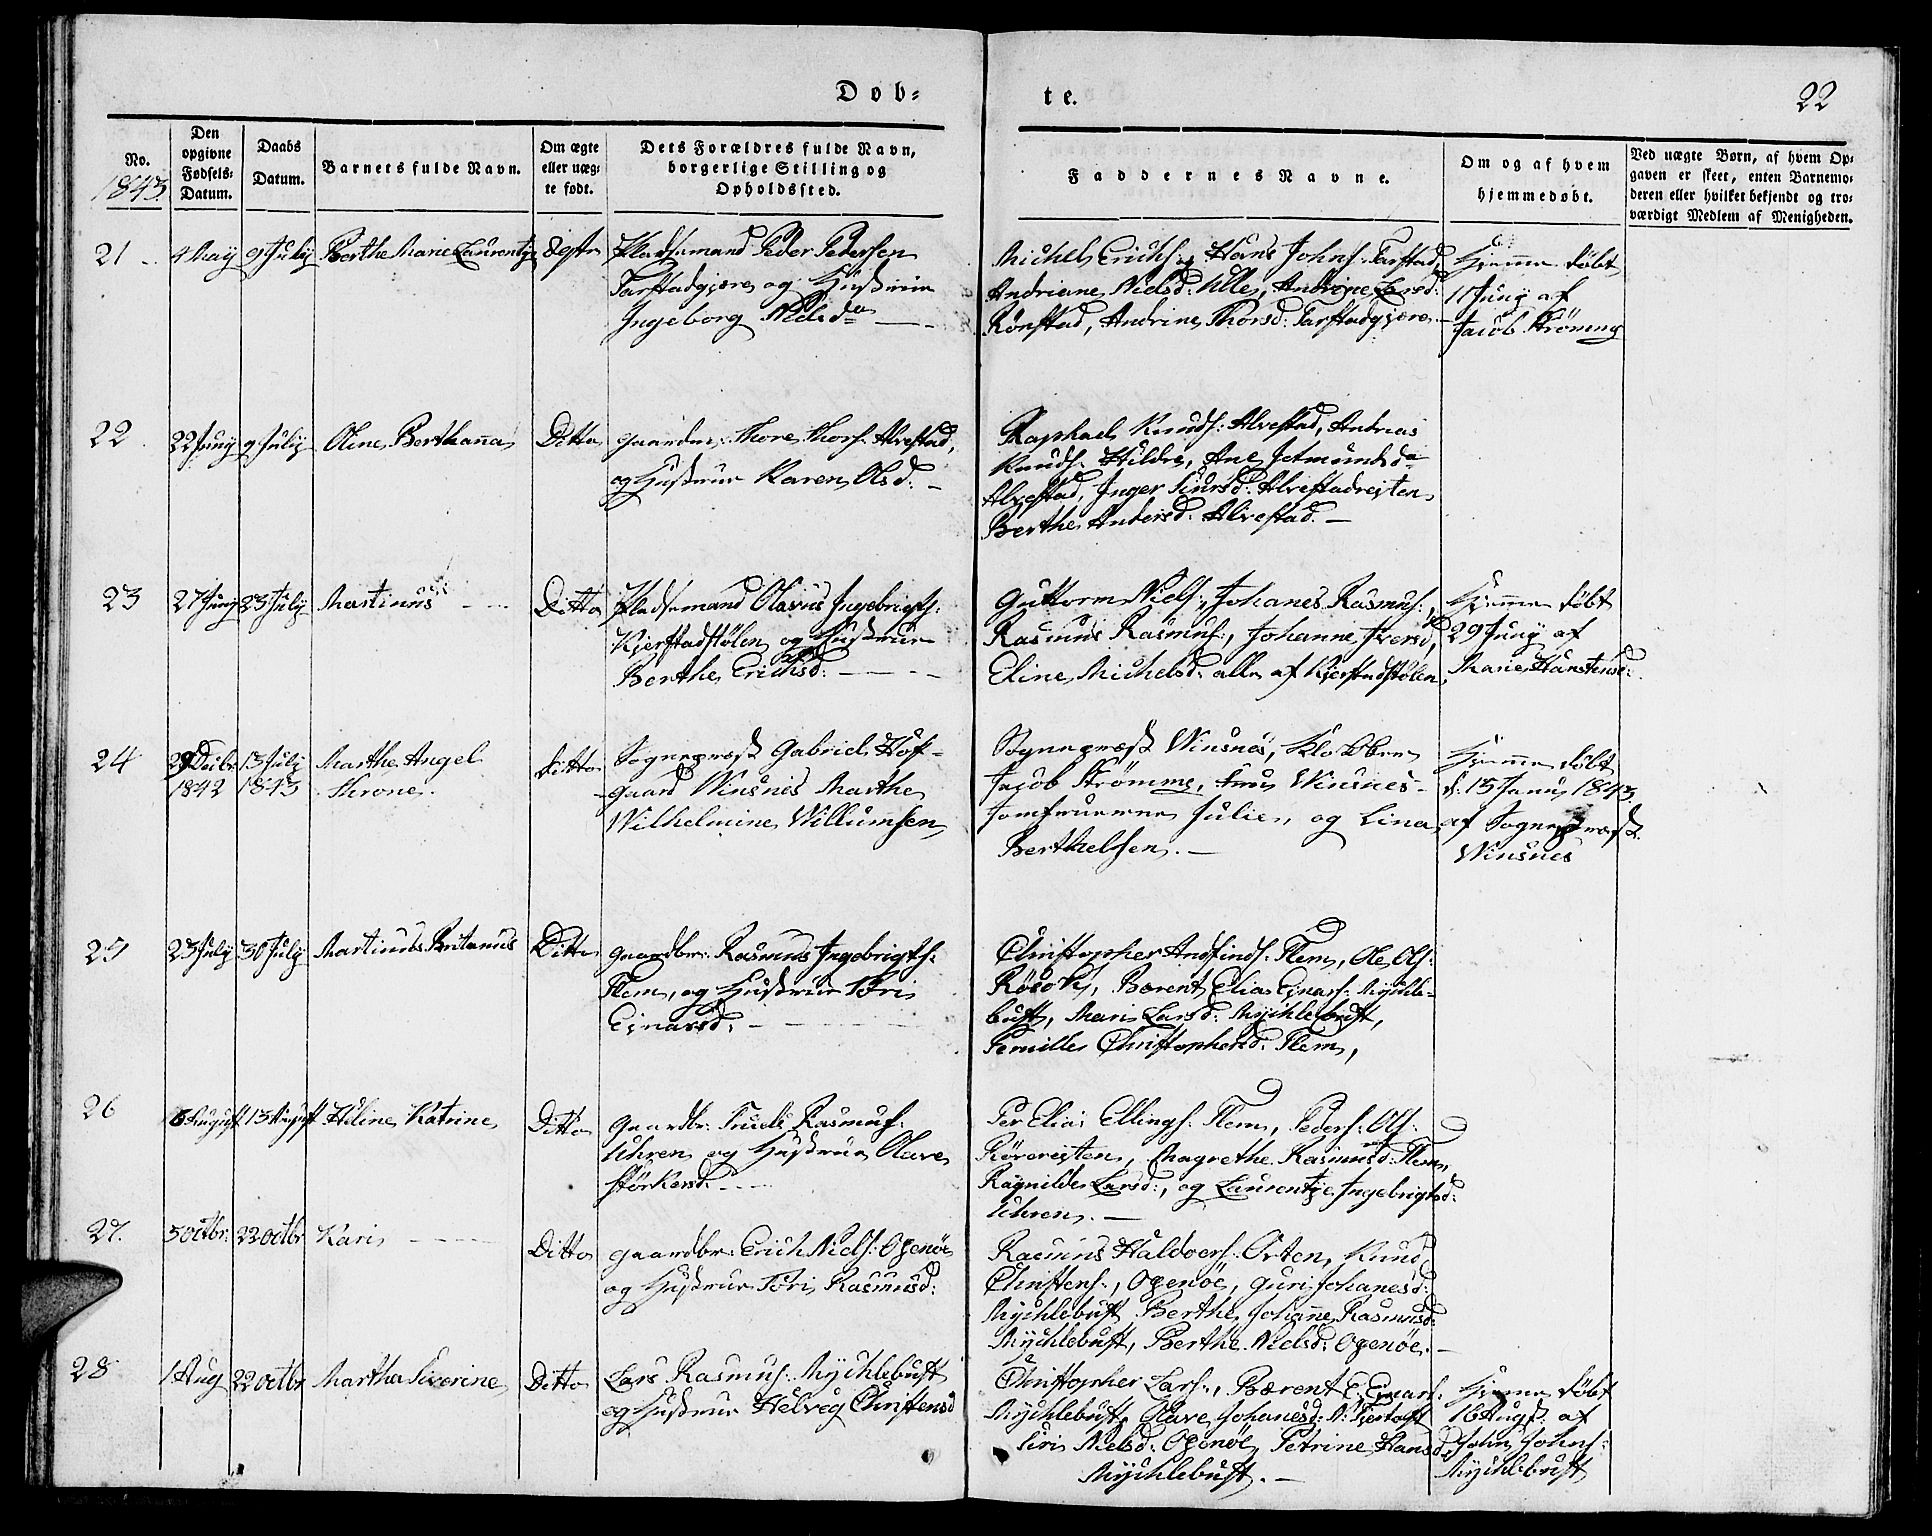 Døb-
te.
22
No.
1843
Den opgivne Fødsels-Datum.
Daabs Datum.
Barnets fulde Navn.
Om ægte eller uæg-te født.
Dets Forældres fulde Navn, borgerlige Stilling og Opholdssted.
Faddernes Navne.
Om og af hvem hjemmedøbt.
Ved uægte Børn, af hvem Op-
gaven er skeet, enten Barnemo-
deren eller hvilket bekjendt og tro-
værdigt Medlem af Menigheden.
21 4 May 9 July Berthe Marie Ægte
Pladsemand Peder Pedersen
Tarstadgjære og Hustrue
Ingeborg Nielsd.
Michel Erichs., Hans Johns. Tarstad,
Andriane Nielsd. Ulle, Larsd:
Rønstad, Andrine Thorsd: Tarstadgjære
Hjemme døbt
11 Juny af
Jacob Strømme
22 22 Juny 9 July Oline Berthana Ditto
Thore Thors: Alvestad,
og Hustrue Karen Olsd:
Raphael Knuds: Alvestad, Andreas
Knuds. Hildre, Ane
Alvestad, Inger Siursd: Alvestadreiten
Berthe Andersd: Alvestad.
23 27 Juny 23 July Martinus Ditto
Pladsemand Olavus Ingebrigts:
Kjerstadstølen og Hustrue
Berthe Erichsd:
Guttorm Niels:, Johanes Rasmus:,
Rasmus Rasmus:, Johanne Iversd,
Eline Michelsd: alle af Kjerstadstølen,
Hjemme døbt
29 Juny af
Marie
24 Decbr 1842 13 July 1843 Marthe Angel
Throne Ditto
Sognepræst Gabriel Hof-
gaard Winsnes Marthe
Wilhelmine Willumsen
Sognepræst Winsnes, Klokker
Jacob Strømme, Winsnes
Jomfruerne Julie, og Lina
Berthelsen.
Hjemme døbt
d: 15 Janu 1843.
af Sognepræst
Winsnes
25 23 July 30 July Martinus Ditto
Gaardbr: Rasmus Ingebrigts:
Flem, og Hustrue Siri
Ejnarsd:
Christopher Andfinds: Flem, Ole Ols:
Bærent Elias Ejnars: Mychle-
bust, Larsd: Mychlebust,
Pernille Christophersd: Flem,
26 August 13 August Katrine Ditto
Gaardbr: Rasmus:
Uhren og Hustrue Olave
Størkersd:
Per Elias Ellings: Flem, Peders: Ols:
Magrethe Rasmusd: Flem,
Ragnilde Larsd:, og Laurentze Ingebrigtsd:
Uhren.
27. 5 Octbr: 22 Octbr Kari Ditto
Gaardbr: Erich Niels: Ogenøe
og Hustrue Siri Rasmusd:
Rasmus Haldvors: Orten, Knud
Christens:, Ogenøe, Guri Johanesd:
Mychlebust Berthe Johanne Rasmusd:
Mychlebust, Berthe Nielsd: Ogenøe.
28 1 Aug 22 Octbr Martha Severine Ditto
Lars Rasmus: Mychlebust
og Hustrue Helveg Christensd
Christopher Lars:, Bærent E. Einars:
Mychlebust, Olave Johanesd: N: Fjørtoft
Siri Nielsd: Ogenøe, Petrine Hansd,
Mychlebust.
Hjemme døbt
16 Augs: af
John Johns:
Mychlebust